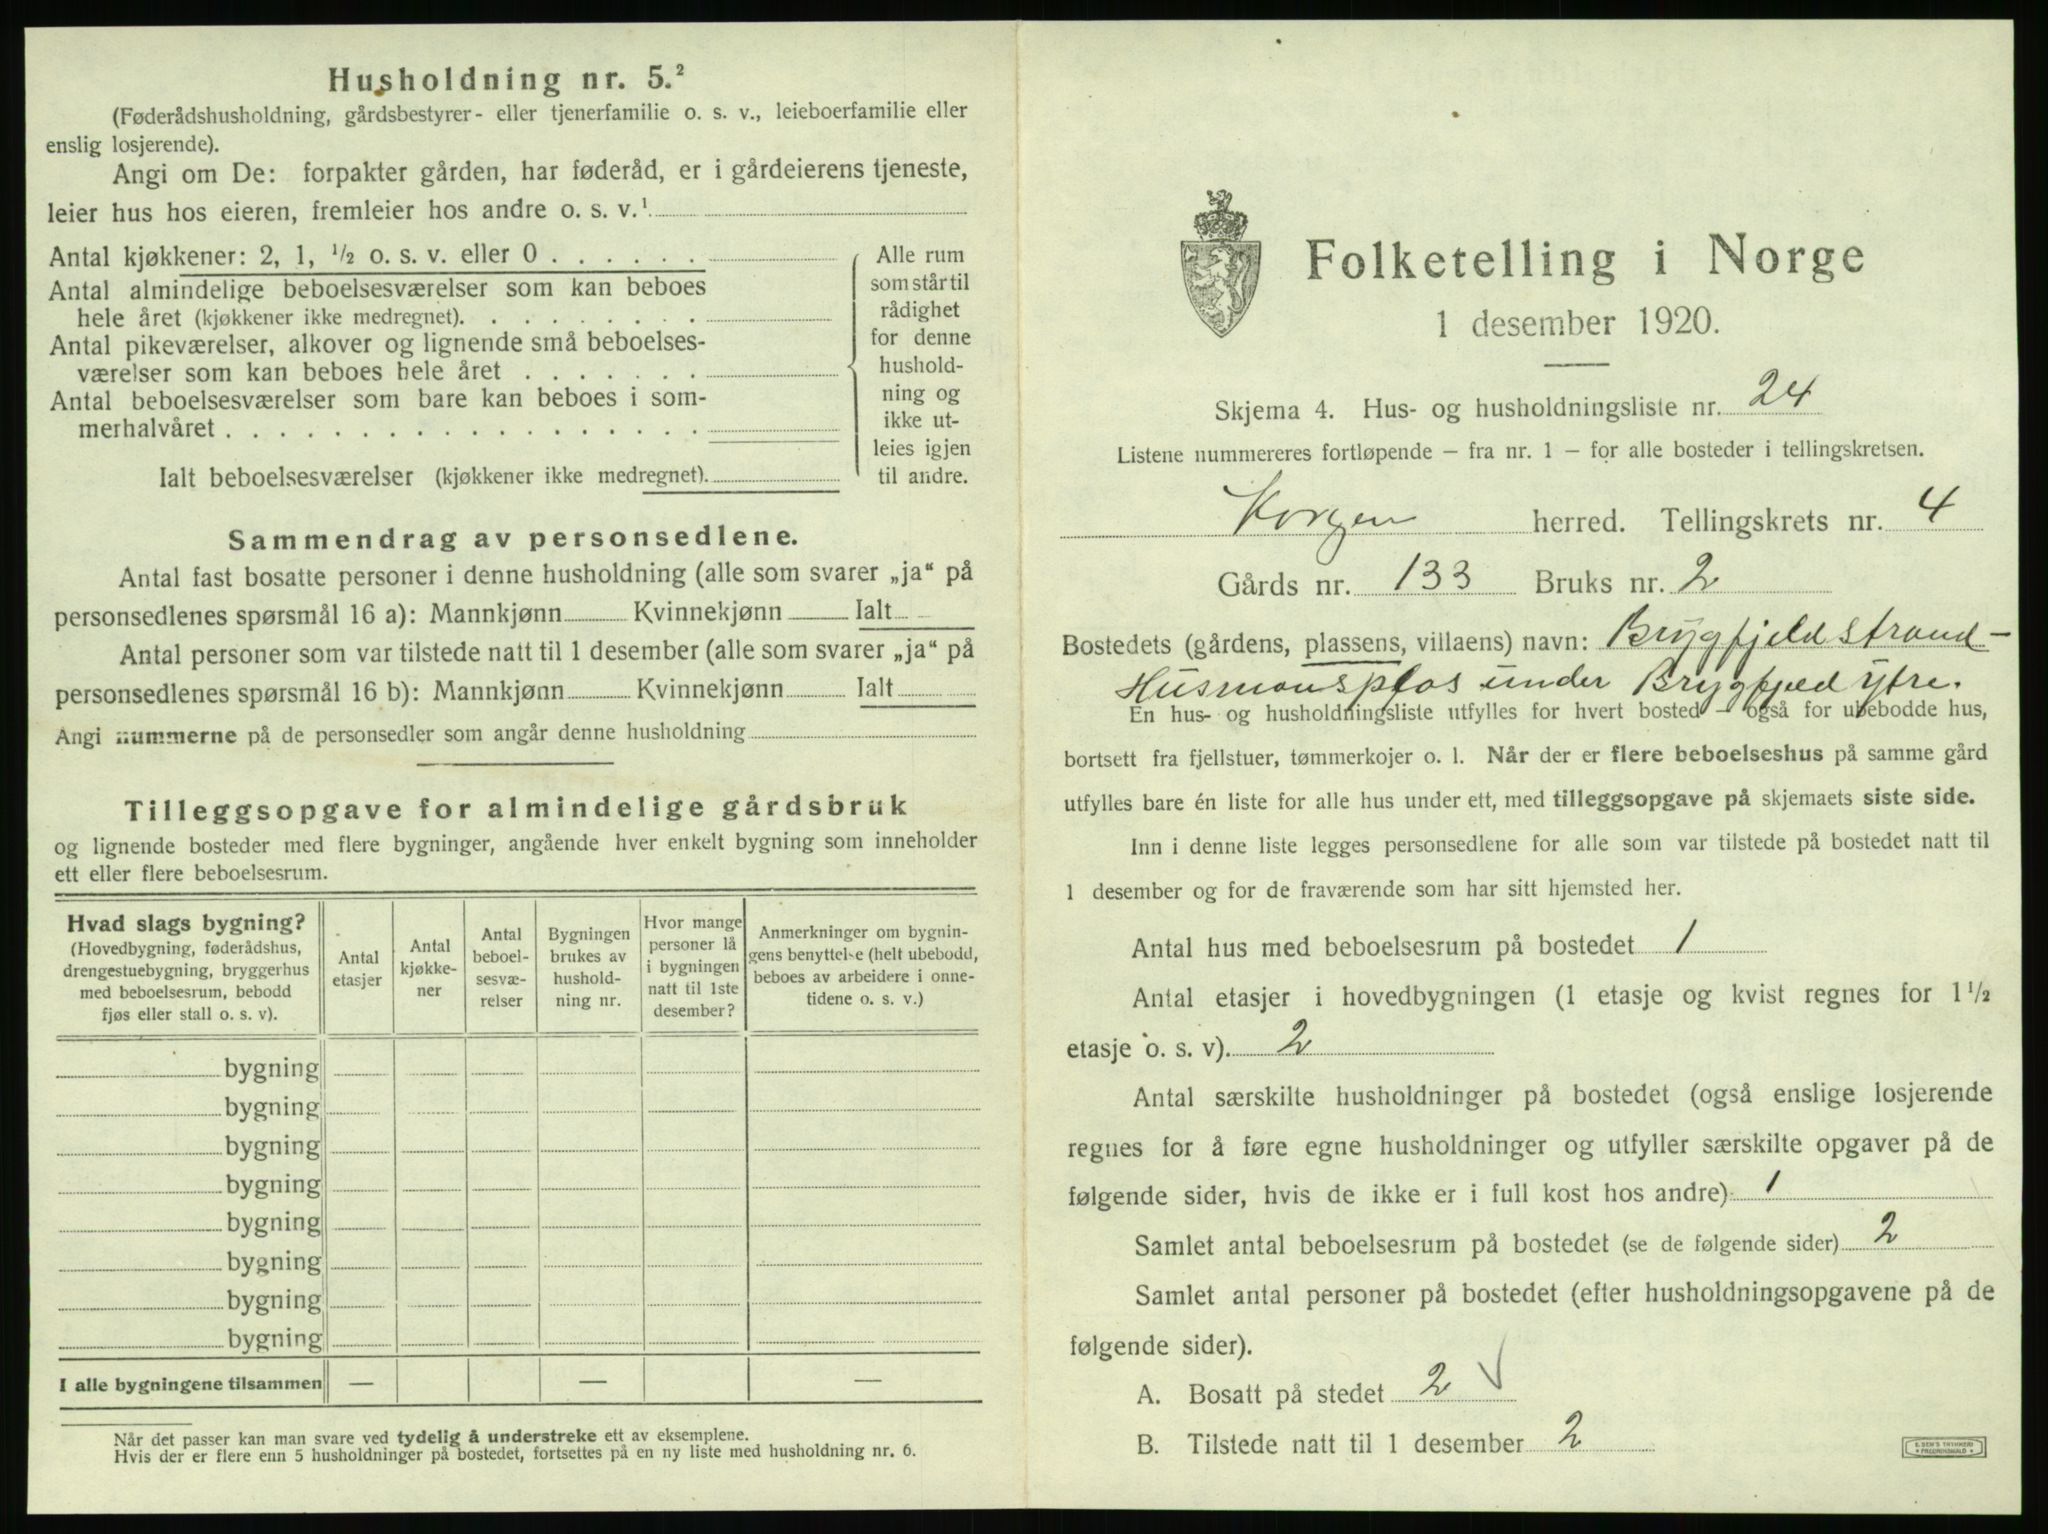 Husholdning nr. 5.²
(Føderådshusholdning, gårdsbestyrer- eller tjenerfamilie o. s. v., leieboerfamilie eller
enslig losjerende).
Angi om De: forpakter gården, har føderåd, er i gårdeierens tjeneste,
leier hus hos eieren, fremleier hos andre o. s. v.¹
Antal kjøkkener: 2, 1, ½ o. s. v. eller 0 . . . . . .
Antal almindelige beboelsesværelser som kan beboes
hele året (kjøkkener ikke medregnet). . . . . . . . .
Antal pikeværelser, alkover og lignende små beboelses-
værelser som kan beboes hele året . . . . . . .
Antal beboelsesværelser som bare kan beboes i som-
merhalvåret . . . . . . . . . . . . . . . . . .
Ialt beboelsesværelser (kjøkkener ikke medregnet).
Alle rum
som står til
rådighet
for denne
hushold-
ning og
ikke ut-
leies igjen
til andre.
Sammendrag av personsedlene.
Antal fast bosatte personer i denne husholdning (alle som svarer „ja“ på
personsedlenes spørsmål 16 a): Mannkjønn Kvinnekjønn Ialt
Antal personer som var tilstede natt til 1 desember (alle som svarer „ja“ på
personsedlenes spørsmål 16 b): Mannkjønn Kvinnekjønn Ialt
Angi nummerne på de personsedler som angår denne husholdning
Tilleggsopgave for almindelige gårdsbruk
og lignende bosteder med flere bygninger, angående hver enkelt bygning som inneholder
ett eller flere beboelsesrum.
Hvad slags bygning?
(Hovedbygning, føderådshus,
drengestuebygning, bryggerhus
med beboelsesrum, bebodd
fjøs eller stall o. s. v).
Antal
etasjer
Antal
kjøkke-
ner
Antal
beboel-
sesvæ-
relser
Bygningen
brukes av
hushold-
ning nr.
Hvor mange
personer lå
i bygningen
natt til 1ste
desember?
Anmerkninger om bygnin-
gens benyttelse (helt ubebodd,
beboes av arbeidere i onne-
tidene o. s. v.)
bygning
bygning
bygning
bygning
bygning
bygning
bygning
bygning
I alle bygningene tilsammen — — —
Når det passer kan man svare ved tydelig å understreke ett av eksemplene.
Hvis der er flere enn 5 husholdninger på bostedet, fortsettes på en ny liste med husholdning nr. 6.
Folketelling i Norge
1 desember 1920.
Skjema 4. Hus- og husholdningsliste nr. 24
Listene nummereres fortløpende – fra nr. 1 – for alle bosteder i tellingskretsen.
Korgen herred. Tellingskrets nr. 4
Gårds nr. 133 Bruks nr. 2
Bostedets (gårdens, plassens, villaens) navn: Brygfjeldstrand –
Husmansplas under Brygfjeld ytre.
En hus- og husholdningsliste utfylles for hvert bosted – også for ubebodde hus,
bortsett fra fjellstuer, tømmerkojer o. l. Når der er flere beboelseshus på samme gård
utfylles bare én liste for alle hus under ett, med tilleggsopgave på skjemaets siste side.
Inn i denne liste legges personsedlene for alle som var tilstede på bostedet natt til
1 desember og for de fraværende som har sitt hjemsted her.
Antal hus med beboelsesrum på bostedet 1
Antal etasjer i hovedbygningen (1 etasje og kvist regnes for 1½
etasje o. s. v). 2
Antal særskilte husholdninger på bostedet (også enslige losjerende
regnes for å føre egne husholdninger og utfyller særskilte opgaver på de
følgende sider, hvis de ikke er i full kost hos andre) 1
Samlet antal beboelsesrum på bostedet (se de følgende sider) 2
Samlet antal personer på bostedet (efter husholdningsopgavene på de
følgende sider).
A. Bosatt på stedet 2 √
B. Tilstede natt til 1 desember 2